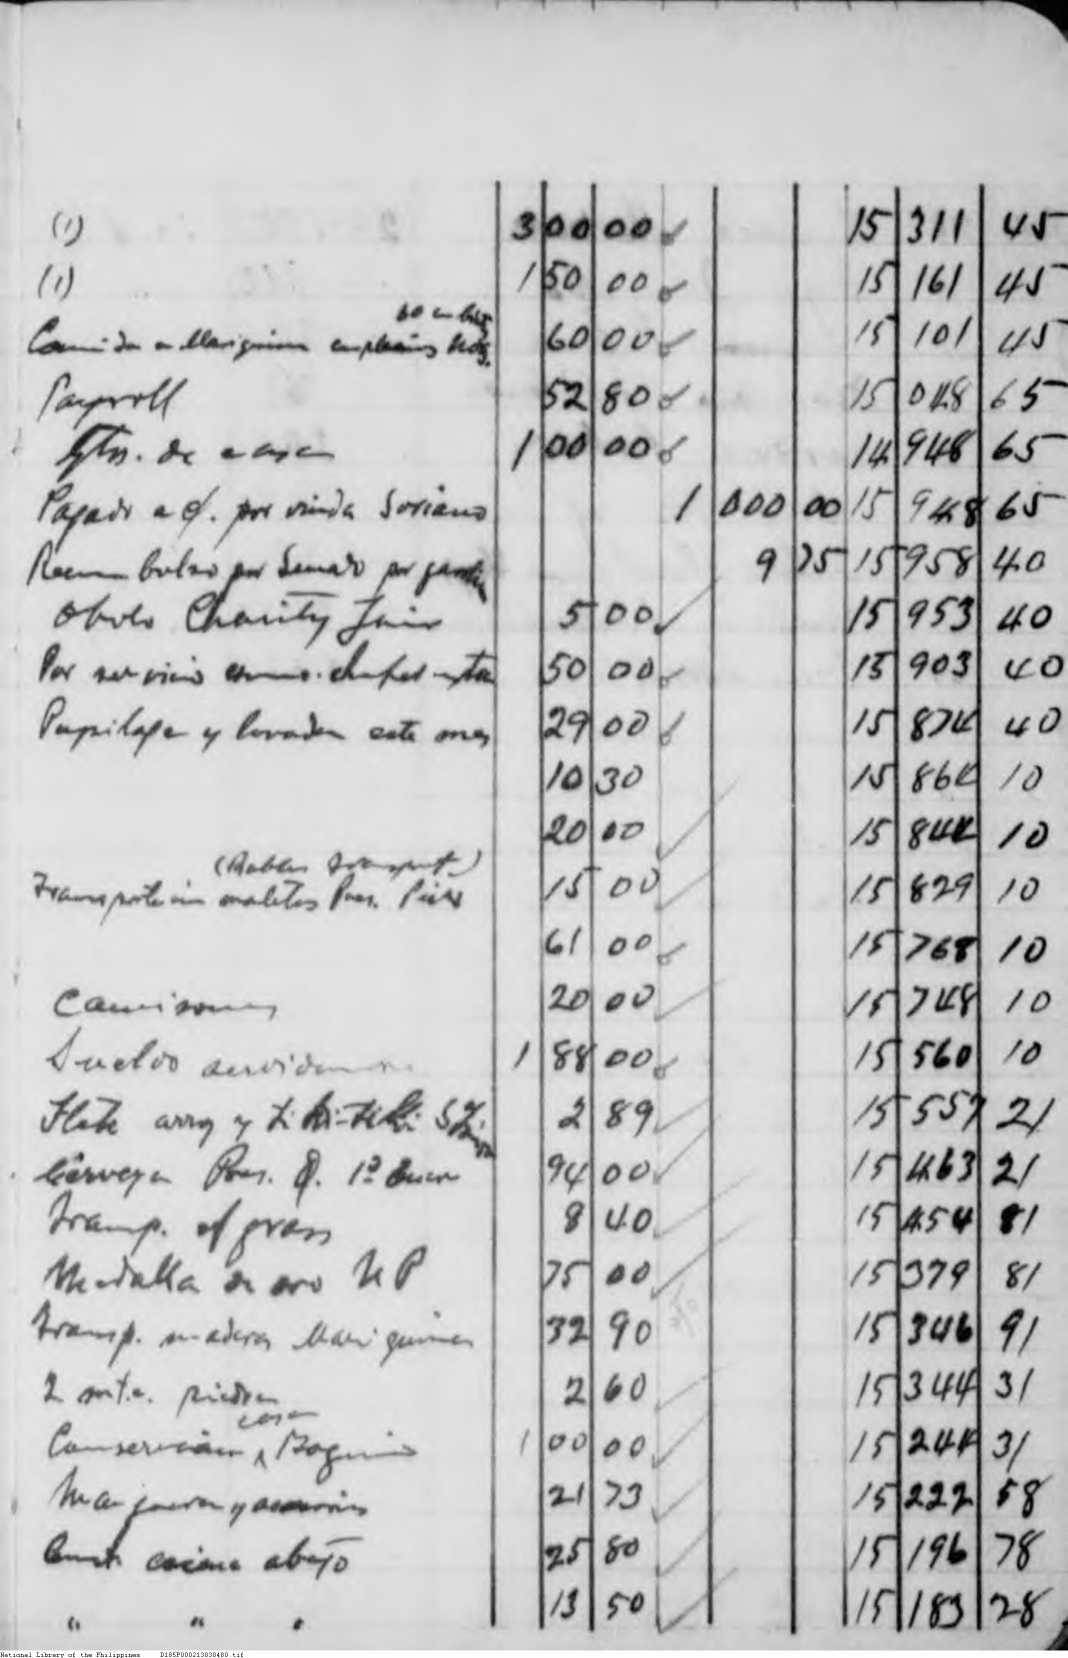 (1) 300 00 15 311 45
(1) 150 00 15 161 45
60 00 15 101 45
Payroll 52 80 15 048 65
Gtos. de casa 100 00 14 948 65
Pagado a c/. por viuda Soriano 1 000 00 15 948 65
Reembolso por Senado por 9 75 15 958 40
Obolo Charity Fair 5 00 15 953 40
Por servicio 50 00 15 903 40
Pupilaje y lavado este mes 29 00 15 874 40
10 30 15 864 10
20 00 15 844 10
(Robles Transport.)
Transportacion maletas Pres. 15 00 15 829 10
61 00 15 768 10
Camisones 20 00 15 748 10
Sueldo 188 00 15 560 10
Flete arroz y tiki-tiki 2 89 15 557 21
Cerveza Pres. Q. 1º Enero 94 00 15 463 21
Transp. of grass 8 40 15 454 81
Medalla de oro UP 75 00 15 379 81
Transp. madera Mariquina 32 90 15 346 91
2 mt.c. piedra 2 60 15 344 31
casa
Conservacion Baguio 100 00 15 244 31
Manguera y accesorios 21 73 15 222 58
Const. cocina abajo 25 80 15 196 78
" " " 13 50 15 183 28
National Library of the Philippines D185P000213030480.tif